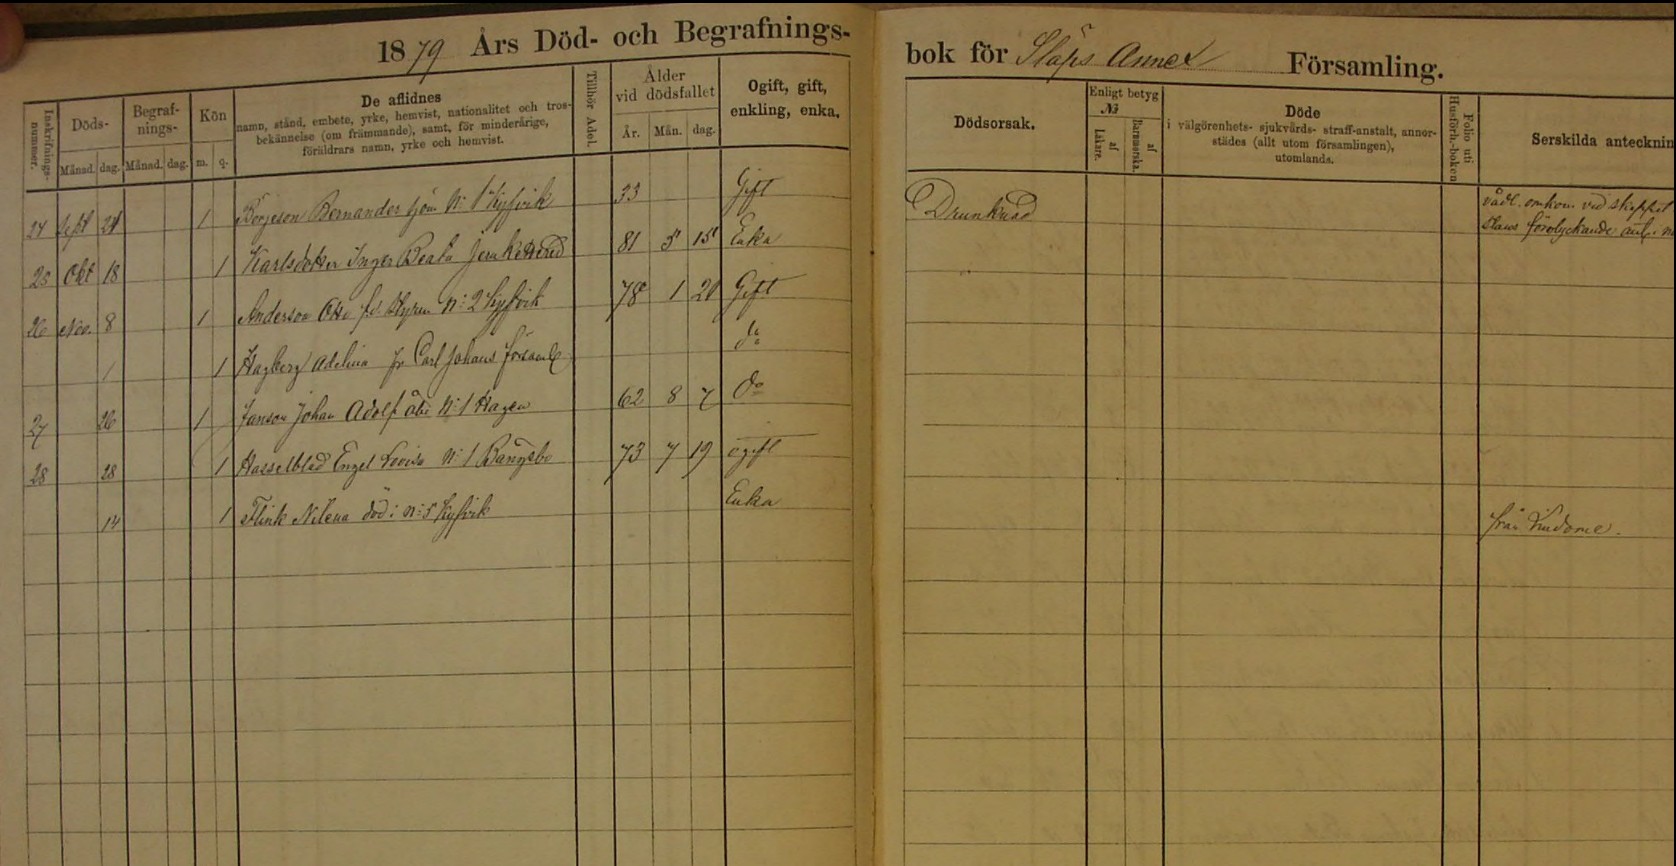 1879 Års Död- och Begrafnings-
bok för Släps Annex Församling.
Inskrifnings-nummer.
Döds-
Månad. dag.
Begraf-nings-
Månad. dag.
Kön
m. q.
De aflidnes
namn, stånd, embete, yrke, hemvist, nationalitet och tros-
bekännelse (om främmande), samt, för minderårige,
föräldrars namn, yrke och hemvist.
Tillhör Adel.
Ålder
vid dödsfallet
År. Mån. dag.
Ogift, gift,
enkling, enka.
Dödsorsak.
Enligt betyg
№
af Läkare.
af Barnmorska.
Döde
i välgörenhets- sjukvårds- straff-anstalt, annor-
städes (allt utom församlingen),
utomlands.
Folio uti
Husförh.-boken
Serskilda antecknin
24 Sept 21 1 Börjeson Bernander Sjöm N: 1 Kyfvik 33 Gift Drunknad
vådl. omkom vid skeppet
förolyckande
25 Okt 18 1 Karlsdotter Inger Beata 81 5 15 Enka
26 Nov. 8 1 Anderson Otto f.d. Styrm N: 2 Kyfvik 78 1 20 Gift
1 1 Hagberg Adelina fr Carl Johans församl do
27 26 1 Janson Johan Adolf åbo N: 1 Hagen 62 8 7 do
28 28 1 Hasselblad Engel Lovisa N: 1 73 7 19 ogift
14 1 Flink N. Lena död i N: 5 Kyfvik Enka från Lindome.